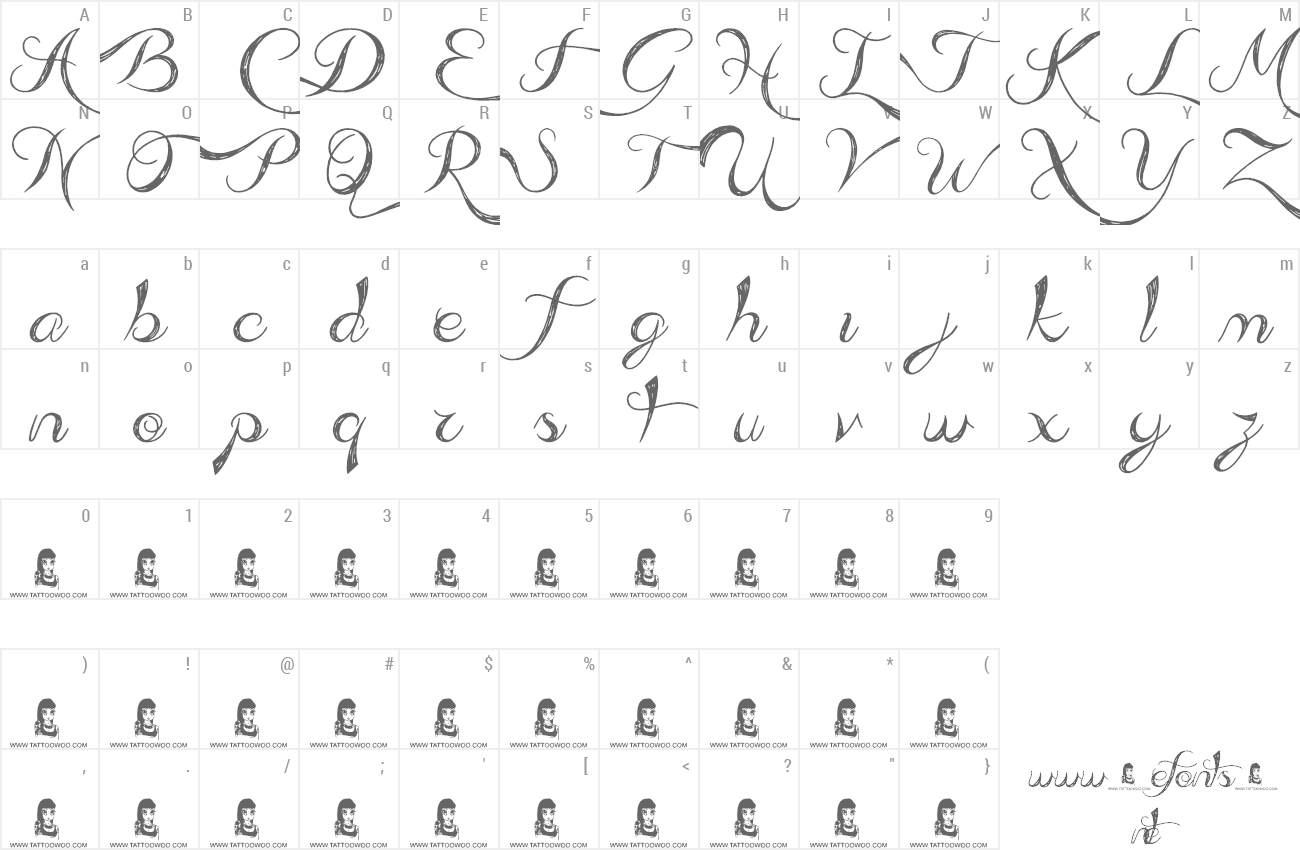 A B C D E F G H I J K L M
A B C D E F G H I J K L M
N O P Q R S T U V W X Y Z
N O P Q R S T U V W X Y Z
a b c d e f g h i j k l m
a b c d e f g h i j k l m
n o p q r s t u v w x y z
n o p q r s t u v w x y z
0 1 2 3 4 5 6 7 8 9
WWW.TATTOOWOO.COM WWW.TATTOOWOO.COM WWW.TATTOOWOO.COM WWW.TATTOOWOO.COM WWW.TATTOOWOO.COM WWW.TATTOOWOO.COM WWW.TATTOOWOO.COM WWW.TATTOOWOO.COM WWW.TATTOOWOO.COM WWW.TATTOOWOO.COM
) ! @ # $ % ^ & * (
WWW.TATTOOWOO.COM WWW.TATTOOWOO.COM WWW.TATTOOWOO.COM WWW.TATTOOWOO.COM WWW.TATTOOWOO.COM WWW.TATTOOWOO.COM WWW.TATTOOWOO.COM WWW.TATTOOWOO.COM WWW.TATTOOWOO.COM WWW.TATTOOWOO.COM
, . / ; ' [ < ? " }
WWW.TATTOOWOO.COM WWW.TATTOOWOO.COM WWW.TATTOOWOO.COM WWW.TATTOOWOO.COM WWW.TATTOOWOO.COM WWW.TATTOOWOO.COM WWW.TATTOOWOO.COM WWW.TATTOOWOO.COM WWW.TATTOOWOO.COM WWW.TATTOOWOO.COM
www WWW.TATTOOWOO.COM efonts WWW.TATTOOWOO.COM
net